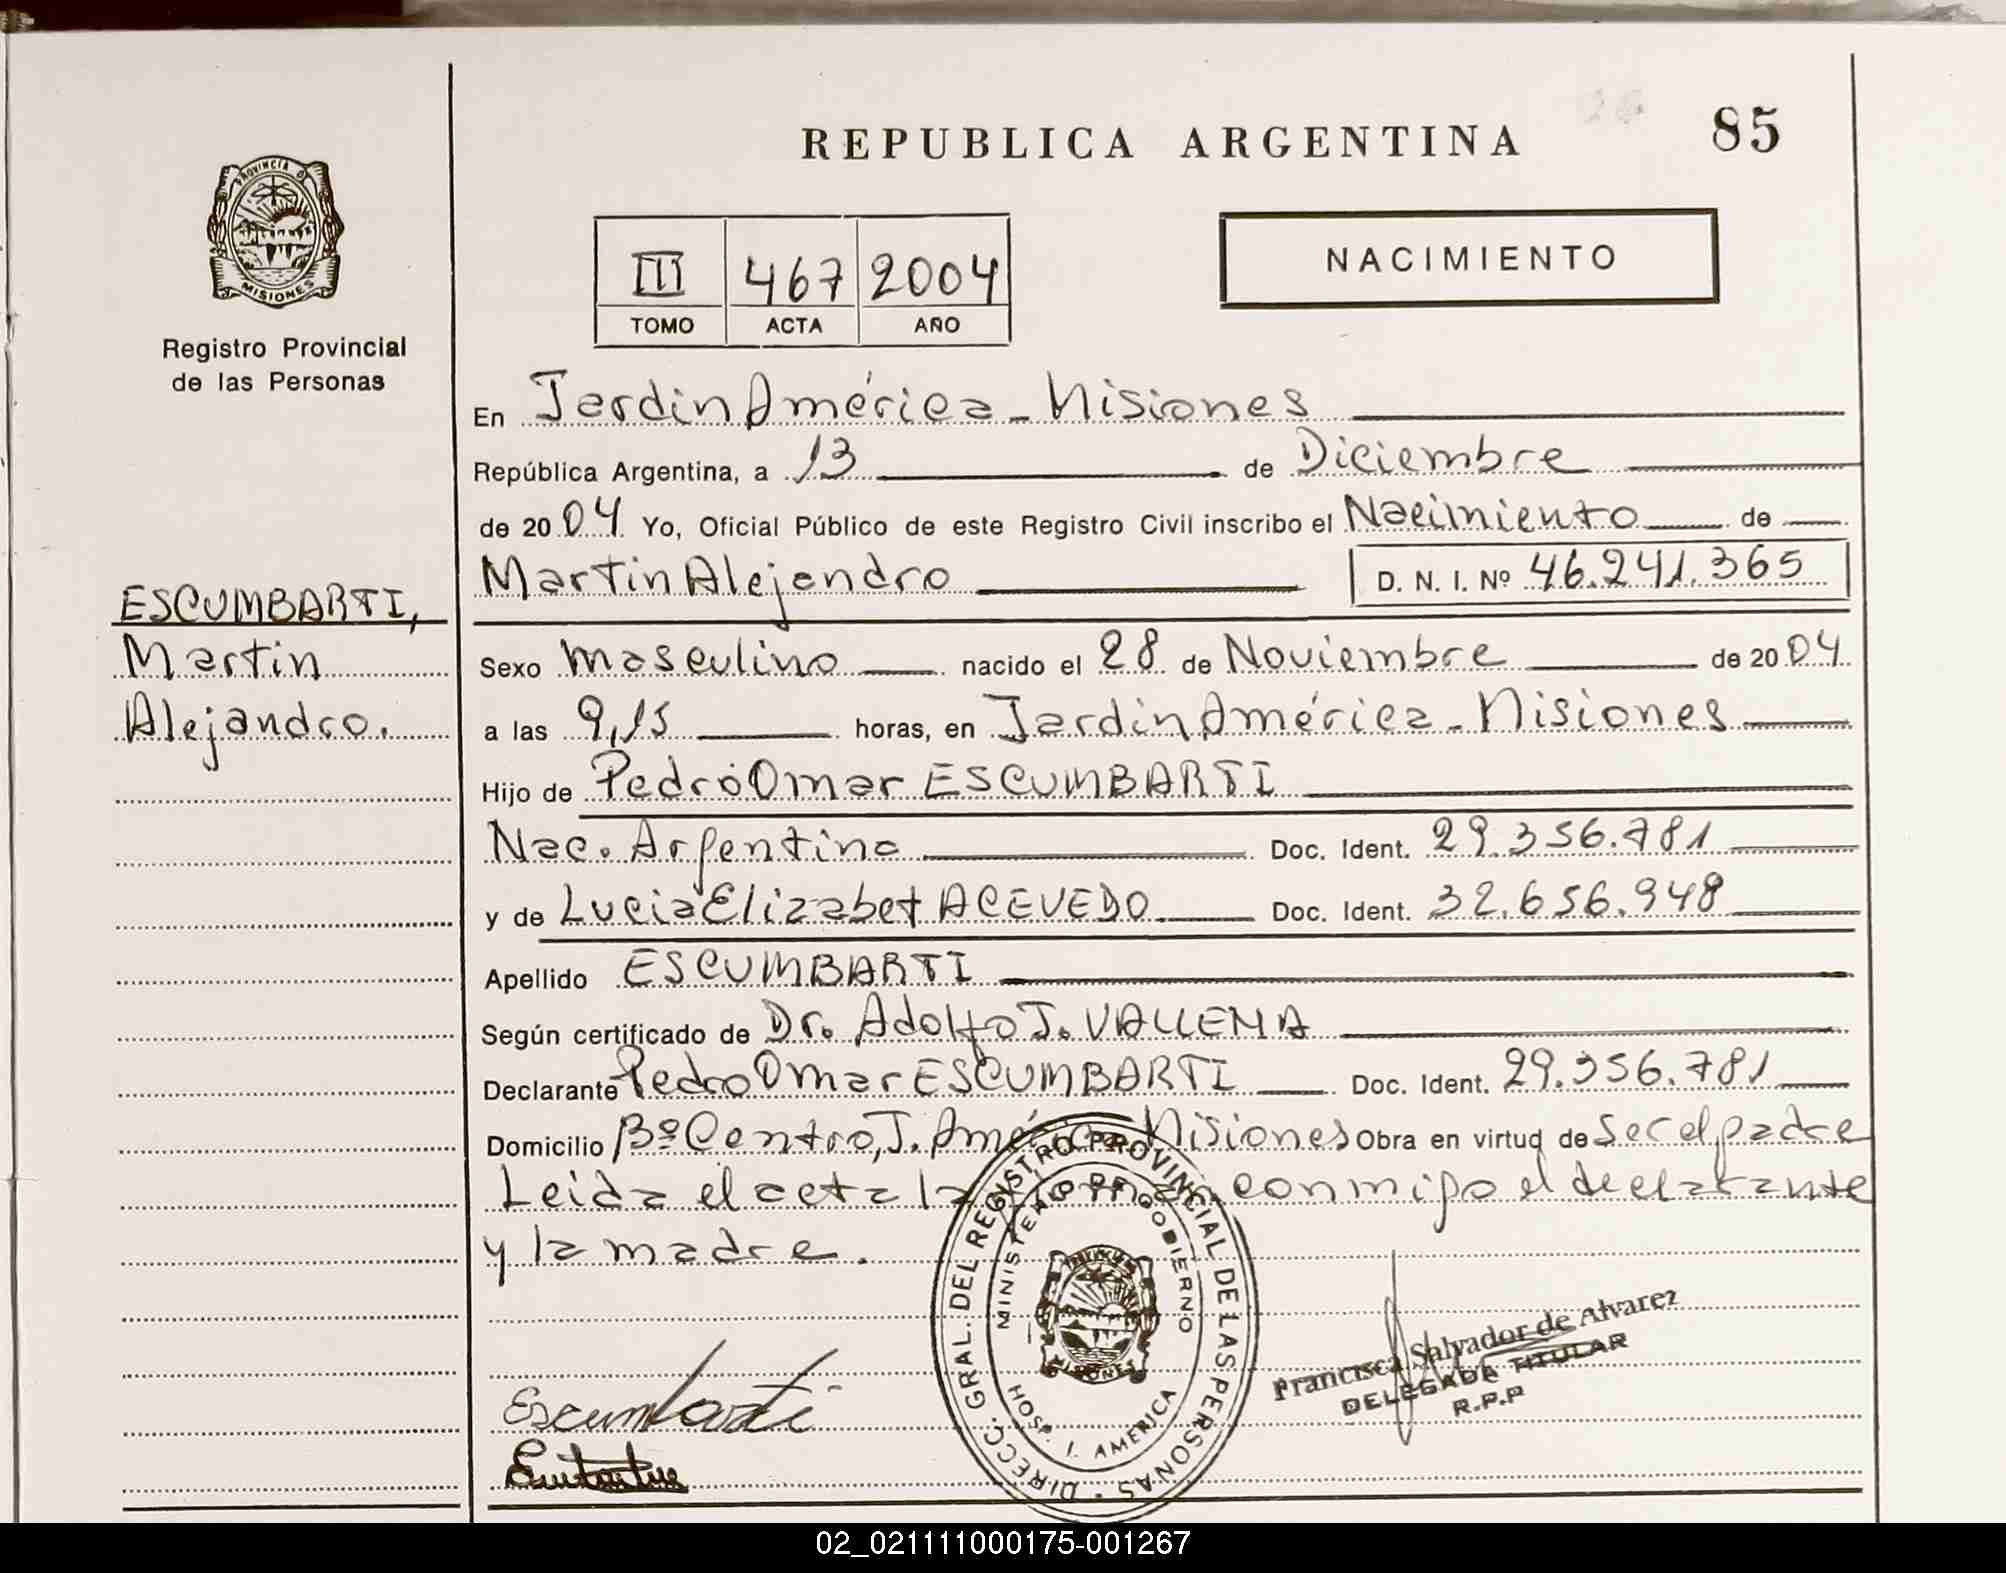 REPUBLICA ARGENTINA
85
PROVINCIA D
MISIONES
Registro Provincial
de las Personas
III 467 2004
TOMO ACTA AÑO
NACIMIENTO
En Jardin América - Misiones
República Argentina, a 13 de Diciembre
de 2004 Yo, Oficial Público de este Registro Civil inscribo el Nacimiento de
Martin Alejandro D. N. I. Nº 46.241.365
ESCUMBARTI,
Martin
Alejandro.
Sexo masculino nacido el 28 de Noviembre de 2004
a las 9,15 horas, en Jardin América - Misiones
Hijo de Pedro Omar ESCUMBARTI
Nac. Argentina Doc. Ident. 29.356.781
y de Lucia Elizabet ACEVEDO Doc. Ident. 32.656.948
Apellido ESCUMBARTI
Según certificado de Dr. Adolfo J. VALLEMA
Declarante Pedro Omar ESCUMBARTI Doc. Ident. 29.356.781
Domicilio Bº Centro, J. América Misiones Obra en virtud de ser el padre
Leida el acta la conmigo el declarante
y la madre.
DIRECC. GRAL. DEL REGISTRO PROVINCIAL DE LAS PERSONAS
MINISTERIO DE GOBIERNO
MISIONES
HOSP. J. AMERICA
Escumbarti
Francisca Salvador de Alvarez
DELEGADA TITULAR
R.P.P
02_021111000175-001267